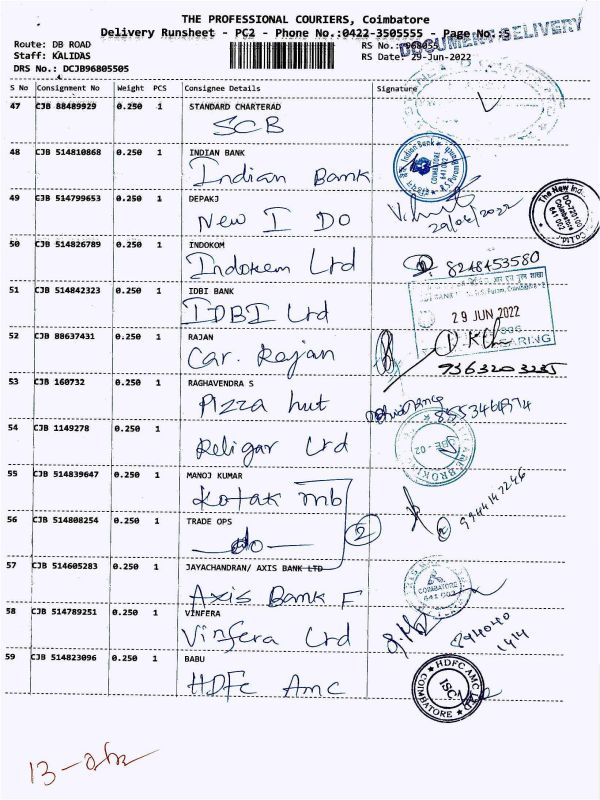 THE PROFESSIONAL COURIERS, Coimbatore
Delivery Runsheet - PC2 - Phone No.:0422-3505555 - Page No.:5
DOCUMENT DELIVERY
Route: DB ROAD
RS No.: 968055
Staff: KALIDAS
RS Date: 29-Jun-2022
DRS No.: DCJB96805505
S No Consignment No Weight PCS Consignee Details Signature
47 CJB 88489929 0.250 1 STANDARD CHARTERAD
SCB
48 CJB 514810868 0.250 1 INDIAN BANK
Indian Bank
Indian Bank
COIMBATORE
641 002
R S Puram
49 CJB 514799653 0.250 1 DEPAKJ
New I DO
29/06/2022
The New Ind.
DO-720100
Coimbatore
641 002
Co.Ltd.
50 CJB 514826789 0.250 1 INDOKOM
Indokem Ltd
8248453580
51 CJB 514842323 0.250 1 IDBI BANK
IDBI Ltd
29 JUN 2022
52 CJB 88637431 0.250 1 RAJAN
Car. Rajan
53 CJB 160732 0.250 1 RAGHAVENDRA S
Pizza hut
54 CJB 1149278 0.250 1
Religar Ltd
CBE-02
55 CJB 514839647 0.250 1 MANOJ KUMAR
Kotak mb
9944142246
56 CJB 514808254 0.250 1 TRADE OPS
do
2
57 CJB 514605283 0.250 1 JAYACHANDRAN/ AXIS BANK LTD
Axis Bank F
COIMBATORE
641 002
58 CJB 514789251 0.250 1 VINFERA
Vinfera Ltd
894040
1414
59 CJB 514823096 0.250 1 BABU
HDFC Amc
HDFC AMC LTD
ISC
COIMBATORE